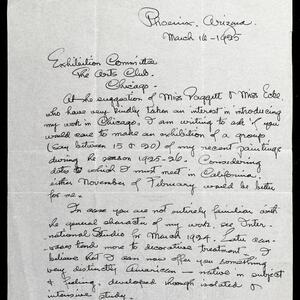 Phoenix, Arizona
March 16-1925
Exhibition Committee
The Arts Club.
Chicago.
At the suggestion of Miss Paggett & Miss
who have very kindly taken an interest in introducing
my work in Chicago, I am writing to ask if you
would care to make an exhibition of a group
(say between 15 & 20) of my recent paintings
during the season 1925-26. Considering
dates which I must meet in California,
either November of February would be better
for me.
In case you are not entirely familiar with
the general character of my work, see Inter-
national Studio for March 1924. Later can-
vases tend more to decorative treatment. I
believe that I can now offer you something
very distinctly American - native in subject
& feeling, developed through isolated &
intensive study.